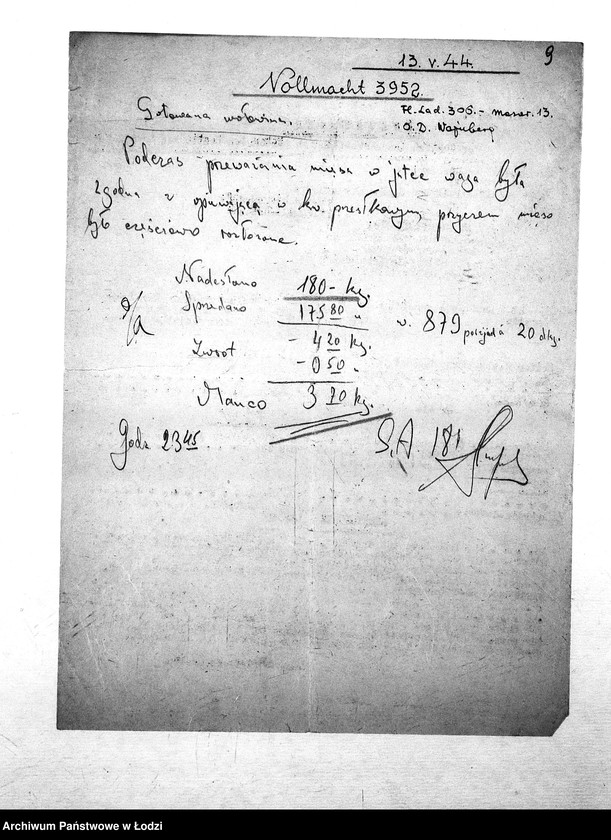 9
13. V. 44.
Vollmacht 3952.
Gotowana wołowina.
Fl. Lad. 306.- marar. 13.
O. D. Wajnberg
Podczas przeważania mięsa w jatce waga była
zgodna z opiewającą w kw. przesłkowym, przyczem mięso
było częściowo rozłożone.
Nadesłano 180- kg.
Sprzedano 175 80 "
v. 879 porcji à 20 dkg.
- 4 20 kg.
Zwrot - 0 50 "
Manco 3 70 kg.
Godz. 23 45.
S.A. 181
Archiwum Państwowe w Łodzi